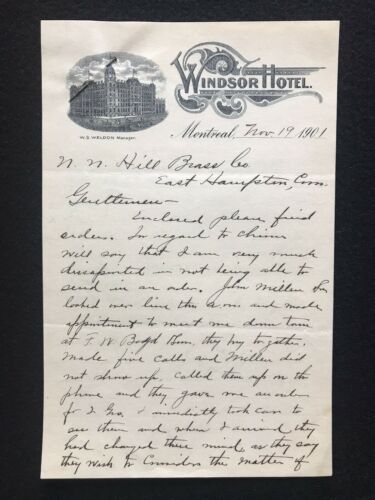 WINDSOR HOTEL.
W. S. WELDON Manager.
Montreal, Nov. 19 1901
N. N. Hill Brass Co
East Hampton, Conn
Gentlemen—
Enclosed please find
orders. In regard to chimes
will say that I am very much
dissapointed in not being able to
send in an order. John Millen Son
looked over line this a.m. and made
appointment to meet me down town
at F. W. they buy together.
Made five calls and Millen did
not show up. Called them up on the
phone and they gave me an order
for 2 Gro. I immediatly took car to
see them and when I arrived they
had changed there mind, as they say
they wish to the matter of